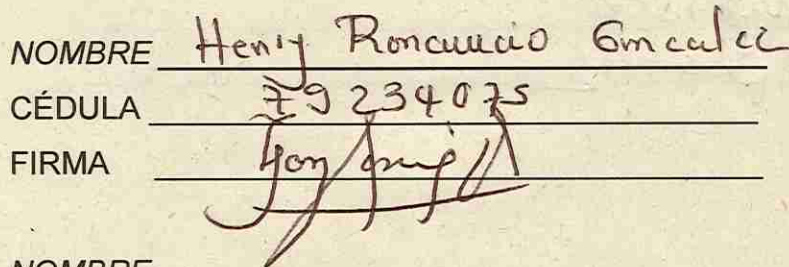 NOMBRE Henry Roncancio Gonzalez
CÉDULA 79234075
FIRMA
NOMBRE